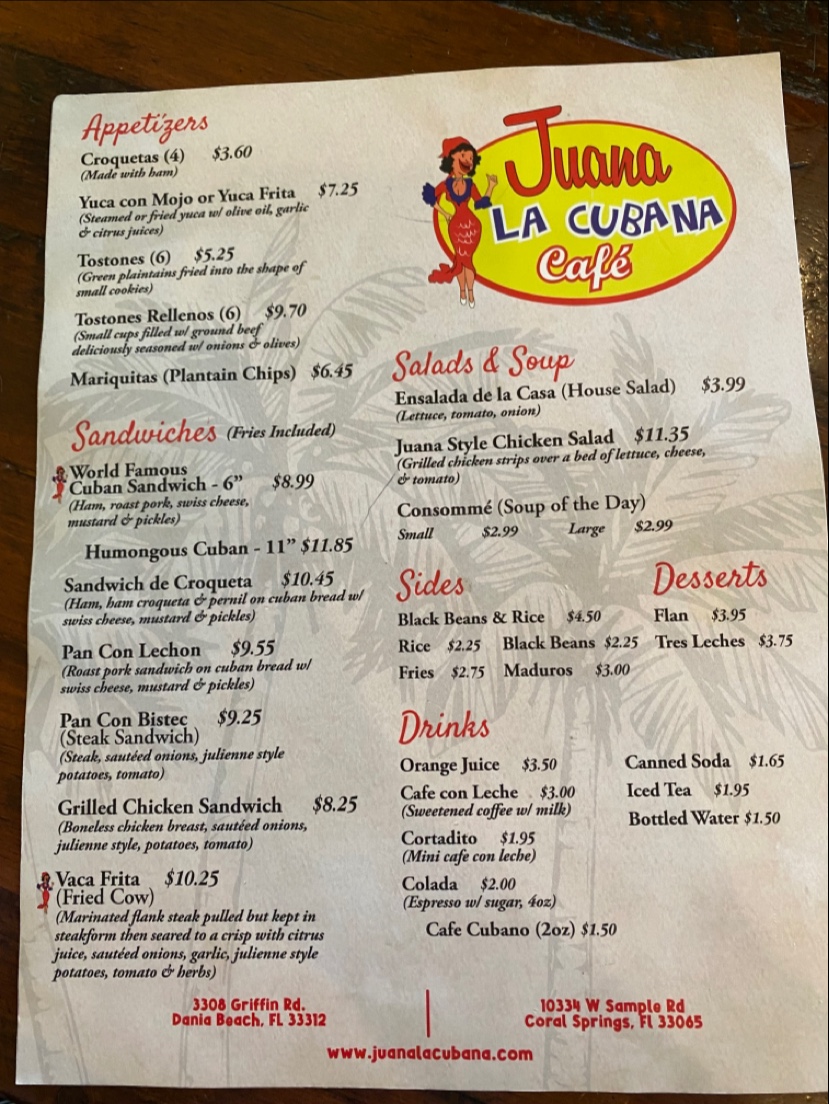 Appetizers
Croquetas (4) $3.60
(Made with ham)
Yuca con Mojo or Yuca Frita $7.25
(Steamed or fried yuca w/ olive oil, garlic
& citrus juices)
Tostones (6) $5.25
(Green plaintains fried into the shape of
small cookies)
Tostones Rellenos (6) $9.70
(Small cups filled w/ ground beef
deliciously seasoned w/ onions & olives)
Mariquitas (Plantain Chips) $6.45
Sandwiches (Fries Included)
World Famous
Cuban Sandwich - 6” $8.99
(Ham, roast pork, swiss cheese,
mustard & pickles)
Humongous Cuban - 11” $11.85
Sandwich de Croqueta $10.45
(Ham, ham croqueta & pernil on cuban bread w/
swiss cheese, mustard & pickles)
Pan Con Lechon $9.55
(Roast pork sandwich on cuban bread w/
swiss cheese, mustard & pickles)
Pan Con Bistec $9.25
(Steak Sandwich)
(Steak, sautéed onions, julienne style
potatoes, tomato)
Grilled Chicken Sandwich $8.25
(Boneless chicken breast, sautéed onions,
julienne style, potatoes, tomato)
Vaca Frita $10.25
(Fried Cow)
(Marinated flank steak pulled but kept in
steakform then seared to a crisp with citrus
juice, sautéed onions, garlic, julienne style
potatoes, tomato & herbs)
Juana
LA CUBANA
Café
Salads & Soup
Ensalada de la Casa (House Salad) $3.99
(Lettuce, tomato, onion)
Juana Style Chicken Salad $11.35
(Grilled chicken strips over a bed of lettuce, cheese,
& tomato)
Consommé (Soup of the Day)
Small $2.99 Large $2.99
Sides
Black Beans & Rice $4.50
Rice $2.25 Black Beans $2.25
Fries $2.75 Maduros $3.00
Desserts
Flan $3.95
Tres Leches $3.75
Drinks
Orange Juice $3.50
Cafe con Leche $3.00
(Sweetened coffee w/ milk)
Cortadito $1.95
(Mini cafe con leche)
Colada $2.00
(Espresso w/ sugar, 4oz)
Cafe Cubano (2oz) $1.50
Canned Soda $1.65
Iced Tea $1.95
Bottled Water $1.50
3308 Griffin Rd.
Dania Beach, FL 33312
10334 W Sample Rd
Coral Springs, Fl 33065
www.juanalacubana.com